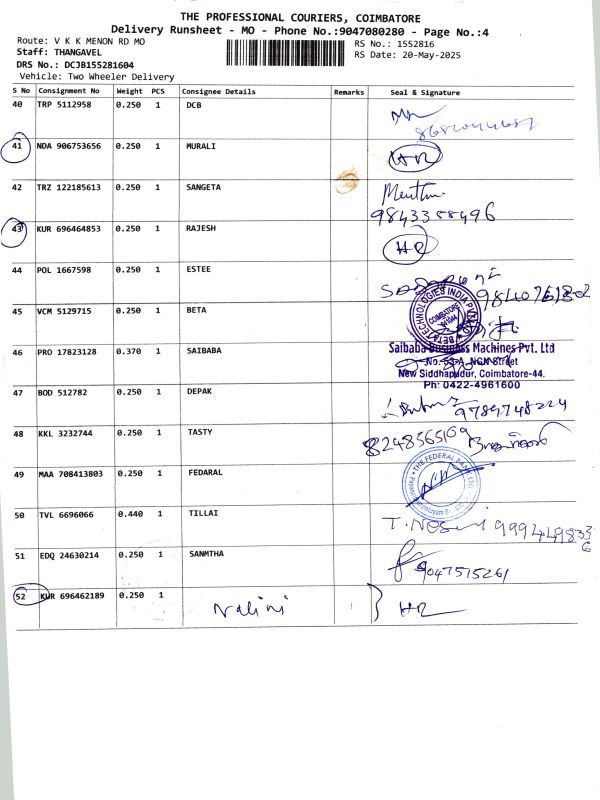 THE PROFESSIONAL COURIERS, COIMBATORE
Delivery Runsheet - MO - Phone No.:9047080280 - Page No.:4
Route: V K K MENON RD MO
Staff: THANGAVEL
DRS No.: DCJB155281604
Vehicle: Two Wheeler Delivery
RS No.: 1552816
RS Date: 20-May-2025
S No Consignment No Weight PCS Consignee Details Remarks Seal & Signature
40 TRP 5112958 0.250 1 DCB
41 NDA 906753656 0.250 1 MURALI HR
42 TRZ 122185613 0.250 1 SANGETA
9843358496
43 KUR 696464853 0.250 1 RAJESH HR
44 POL 1667598 0.250 1 ESTEE
45 VCM 5129715 0.250 1 BETA
BETA TECHNOLOGIES INDIA PVT
COIMBATORE
46 PRO 17823128 0.370 1 SAIBABA
Saibaba Business Machines Pvt. Ltd
New Siddhapudur, Coimbatore-44.
Ph: 0422-4961600
47 BOD 512782 0.250 1 DEPAK
9789748224
48 KKL 3232744 0.250 1 TASTY
8248565109
49 MAA 708413803 0.250 1 FEDARAL
THE FEDERAL BANK LTD
50 TVL 6696066 0.440 1 TILLAI
51 EDQ 24630214 0.250 1 SANMTHA
9047515261
52 KUR 696462189 0.250 1 Nalini HR